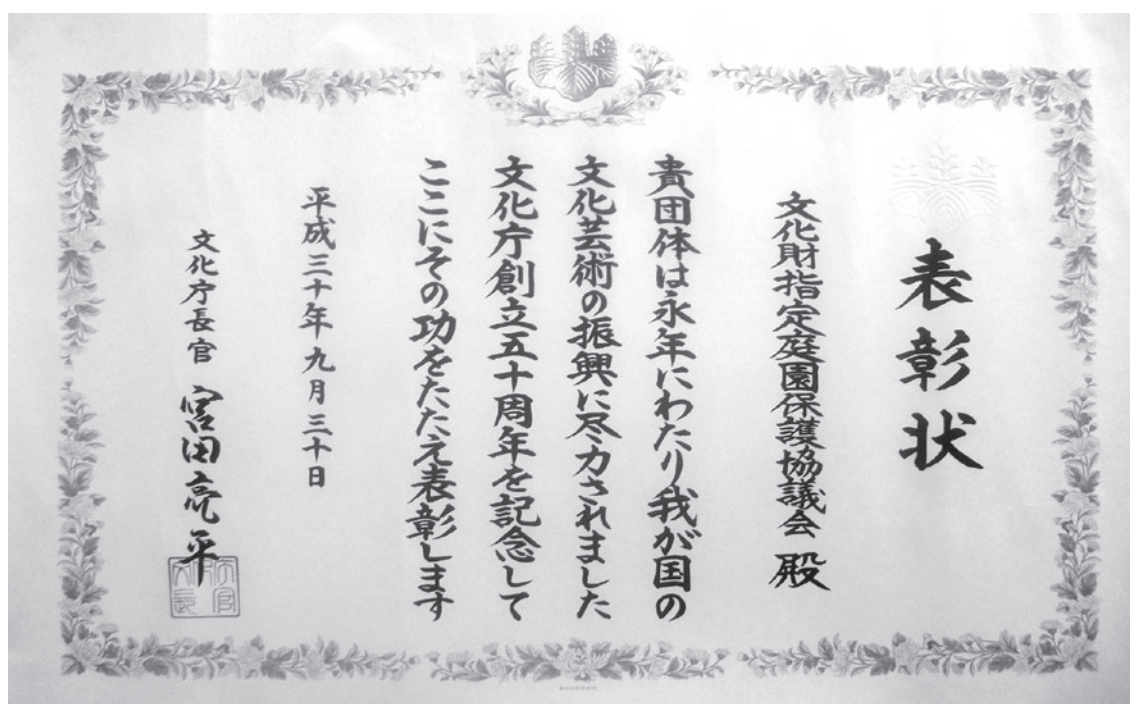 表彰状
文化財指定庭園保護協議会 殿
貴団体は永年にわたり我が国の
文化芸術の振興に尽力されました
文化庁創立五十周年を記念して
ここにその功をたたえ表彰します
平成三十年九月三十日
文化庁長官 宮田亮平